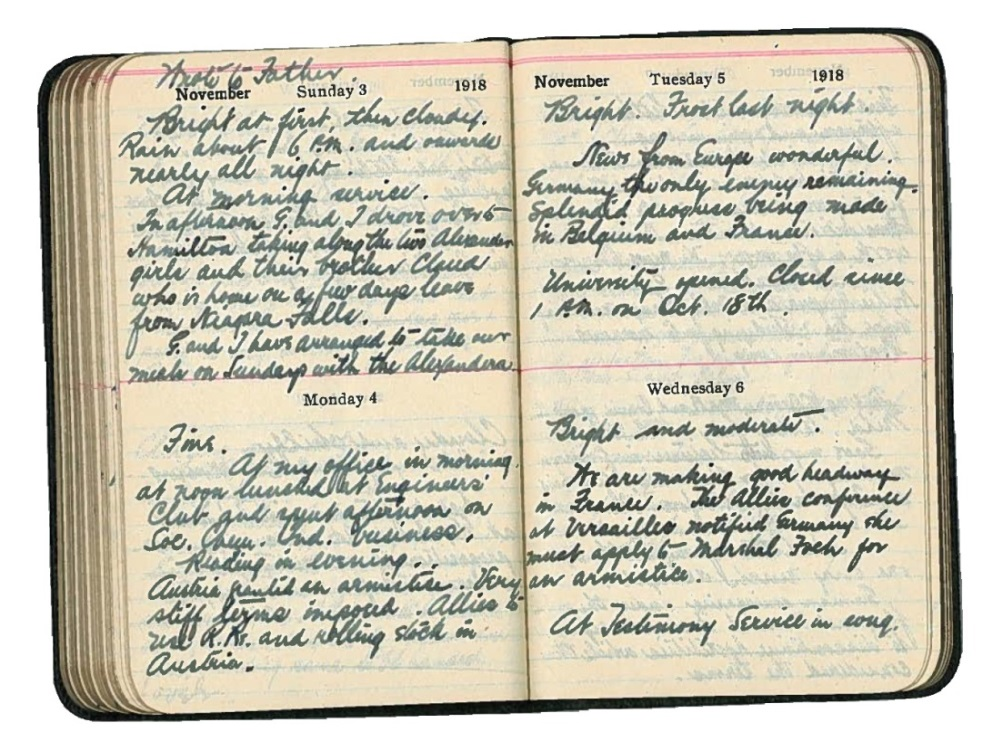 Wrote to Father.
November Sunday 3 1918
Bright at first, then cloudy.
Rain about 6 P.M. and onwards
nearly all night.
At morning service.
In afternoon G. and I drove over to
Hamilton taking along the two Alexander
girls and their brother Claud
who is home on a few days leave
from Niagara Falls.
G. and I have arranged to take our
meals on Sundays with the Alexanders.
Monday 4
Fine.
At my office in morning.
at noon lunched at Engineers'
Club and spent afternoon on
Soc. Chem. Ind. business.
Reading in evening.
Austria granted an armistice. Very
stiff terms imposed. Allies to
use R.Rs. and rolling stock in
Austria.
November Tuesday 5 1918
Bright. Frost last night
News from Europe wonderful.
Germany the only enemy remaining.
Splendid progress being made
in Belgium and France.
University opened. Closed since
1 P.M. on Oct. 18th.
Wednesday 6
Bright and moderate.
We are making good headway
in France. The Allies conference
at Versailles notified Germany she
must apply to Marshal Foch for
an armistice.
At Testimony Service in evng.